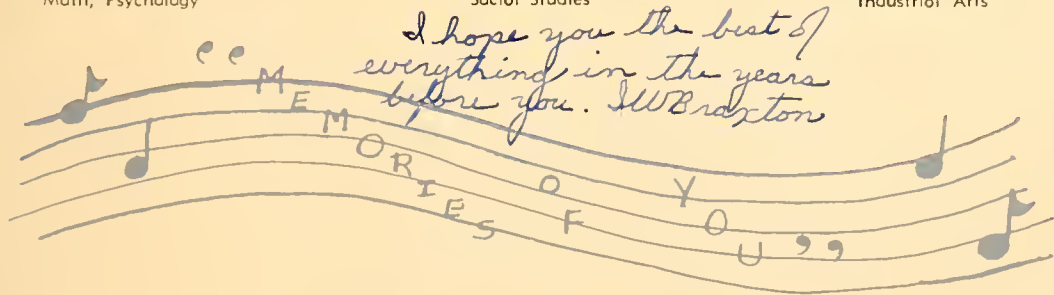 Math, Psychology Social Studies Industrial Arts
I hope you the best of
everything in the years
before you. IWBraxton
"MEMORIES OF YOU"